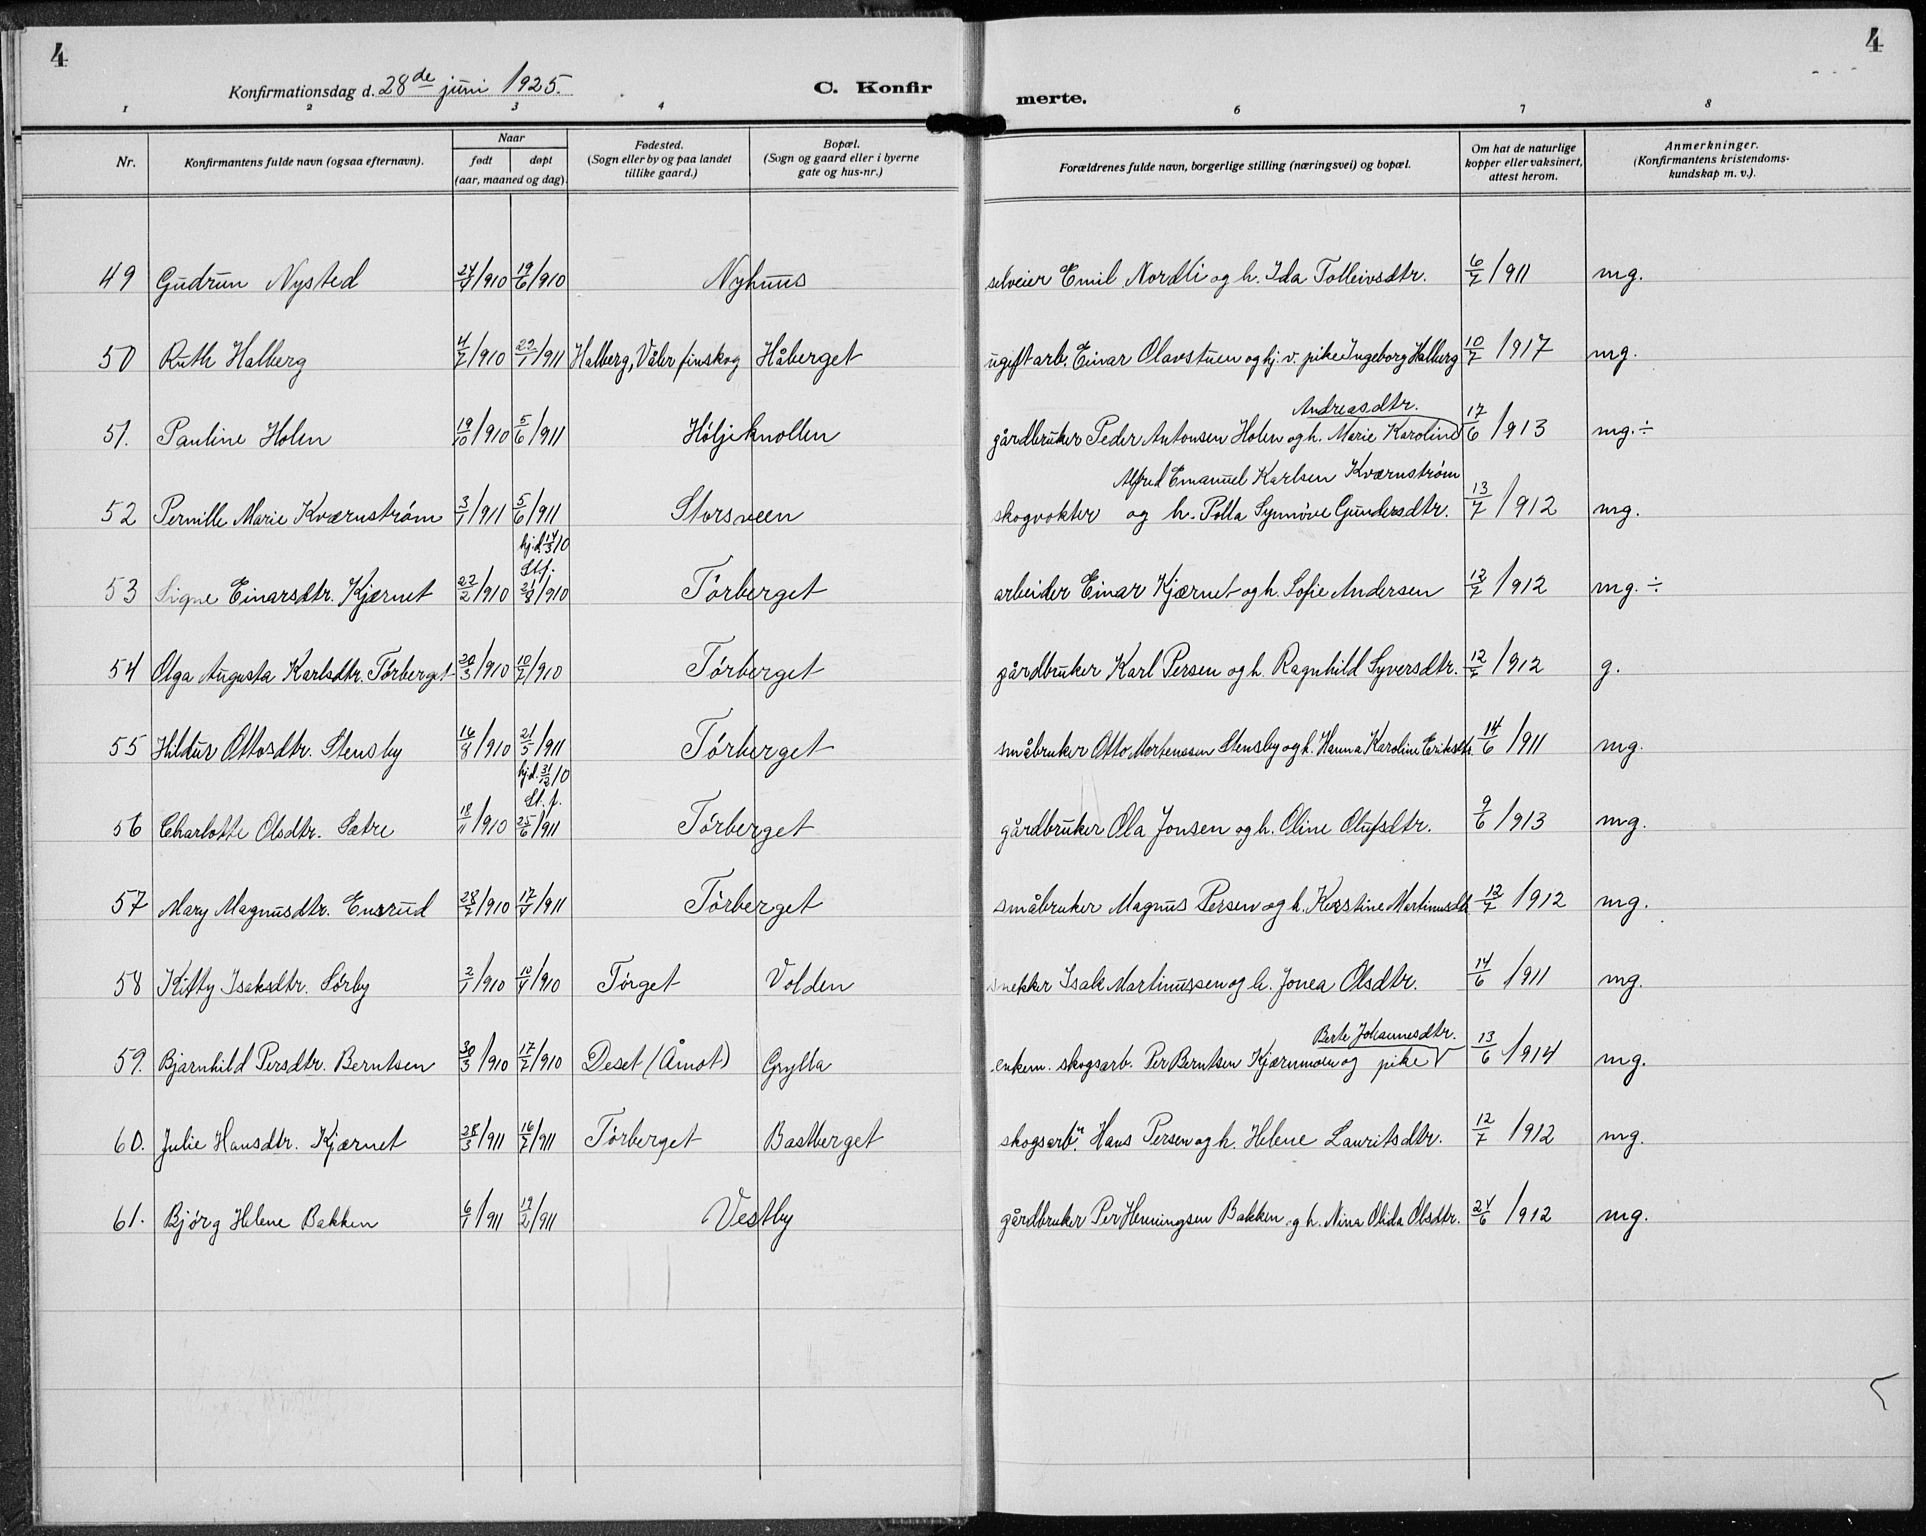 4
4
Konfirmationsdag d. 28de juni 1925.
C. Konfir
merte.
1 2 3 4 6 7 8
Nr. Konfirmantens fulde navn (ogsaa efternavn). Naar født døpt (aar, maaned og dag). Fødested. (Sogn eller by og paa landet tillike gaard.) Bopæl. (Sogn og gaard eller i byerne gate og hus-nr.) Forældrenes fulde navn, borgerlige stilling (næringsvei) og bopæl. Om hat de naturlige kopper eller vaksinert, attest herom. Anmerkninger. (Konfirmantens kristendoms-kundskap m. v.).
49 Gudrun Nysted 24/4/910 19/6/910 Nyhuus selveier Emil Nordli og h. Ida Tolleivsdtr. 6/7/911 mg.
50 Ruth Halberg 4/7/910 22/1/911 Halberg, Våler finskog Håberget ugift arb. Einar Olavstuen og hj. v. pike Ingeborg Halberg 10/7/917 mg.
Andreasdtr.
51. Pauline Holen 19/10/910 5/6/911 Høljeknollen gårdbruker Peder Antonsen Holen og h. Marie Karoline 17/6/913 mg. ÷
Alfred Emanuel Karlsen Kværnstrøm
52 Pernille Marie Kværnstrøm 3/1/911 5/6/911 Storsveen skogvokter og h. Polla Synnøve Gundersdtr. 13/7/912 mg.
hj.d. 14/3/10
St.f.
53 Signe Einarsdtr. Kjærnet 22/2/910 21/8/910 Tørberget arbeider Einar Kjærnet og h. Sofie Andersen 12/7/912 mg. ÷
54 Olga Augusta Karlsdtr. Tørberget 20/3/910 10/7/910 Tørberget gårdbruker Karl Persen og h. Ragnhild Syversdtr. 12/7/912 g.
55 Hildur Ottosdtr. Stensby 16/8/910 21/5/911 Tørberget småbruker Otto Mortenssen Stensby og h. Hanna Karoline Eriksdtr. 14/6/911 mg.
hj.d. 31/12/10
St. f.
56 Charlotte Olsdtr. Sætre 18/11/910 25/6/911 Tørberget gårdbruker Ola Jonsen og h. Oline Olufsdtr. 9/6/913 mg.
57 Mary Magnusdtr. Ensrud 28/7/910 17/4/911 Tørberget småbruker Magnus Persen og h. Kerstine Martinusdtr 12/7/912 mg.
58 Kitty Isaksdtr. Sørby 2/1/910 10/4/910 Tørget Volden snekker Isak Martinussen og h. Jonea Olsdtr. 14/6/911 mg.
Berte Johannesdtr.
59. Bjarnhild Persdtr. Berntsen 30/3/910 17/7/910 Deset (Åmot) Grylla enkem. skogsarb. Per Berntsen Kjærnmoen og pike V 13/6/914 mg.
60. Julie Hansdtr. Kjærnet 28/3/911 16/7/911 Tørberget Bastberget skogsarb. Hans Persen og h. Helene Lauritsdtr. 12/7/912 mg.
61. Bjørg Helene Bakken 6/1/911 19/2/911 Vestby gårdbruker Per Henningsen Bakken og h. Nina Olida Olsdtr. 24/6/912 mg.